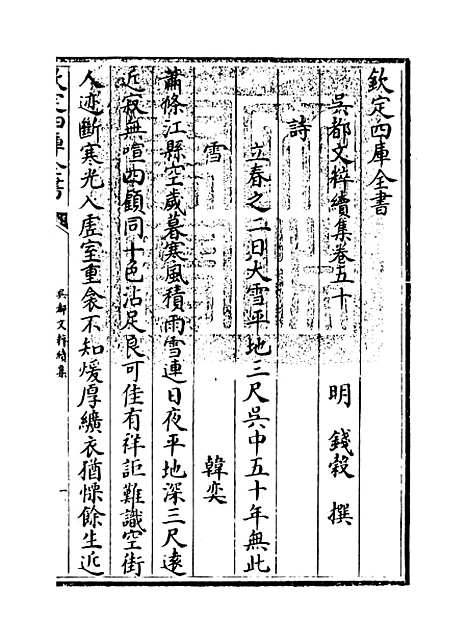 欽定四庫全書
吳都文粹續集卷五十
明 錢穀 撰
詩
立春之二日大雪平地三尺吳中五十年無此
雪 韓奕
蕭條江縣空歲暮寒風積雨雪連日夜平地深三尺遠
近寂無喧四顧同十色沾足良可佳有祥詎難識空街
人迹斷寒光入虛室重衾不知煖厚纊衣猶慄餘生近
欽定四庫全書
吳都文粹續集
一